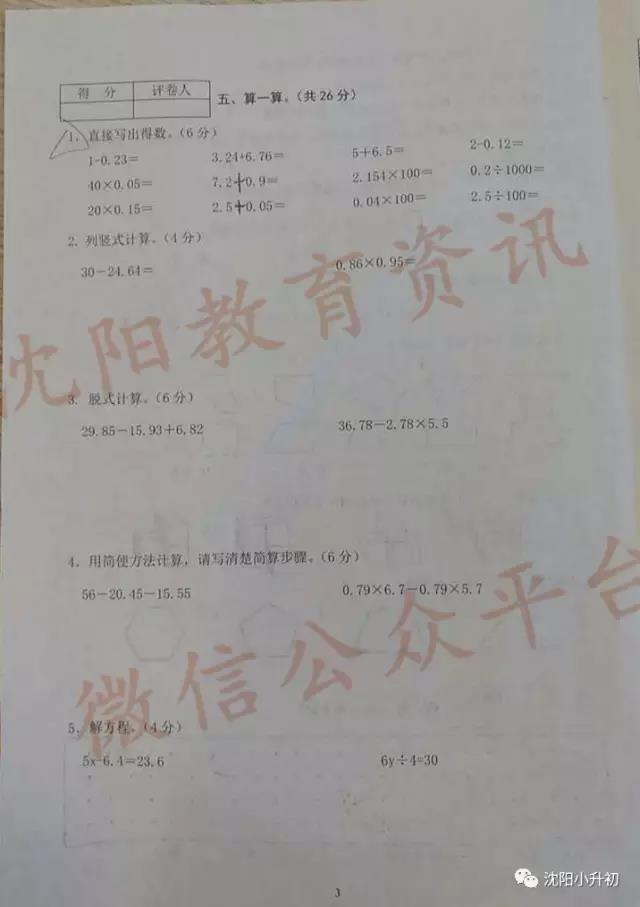 得 分 评卷人
五、算一算。(共26分)
1、直接写出得数。(6分)
1-0.23= 3.24+6.76= 5+6.5= 2-0.12=
40×0.05= 7.2+0.9= 2.154×100= 0.2÷1000=
20×0.15= 2.5+0.05= 0.04×100= 2.5÷100=
2. 列竖式计算。(4分)
30-24.64= 0.86×0.95=
沈阳教育资讯
3. 脱式计算。(6分)
29.85-15.93+6.82 36.78-2.78×5.5
4. 用简便方法计算，请写清楚简算步骤。(6分)
56-20.45-15.55 0.79×6.7-0.79×5.7
微信公众平台
5. 解方程。(4分)
5x-6.4=23.6 6y÷4=30
3
沈阳小升初